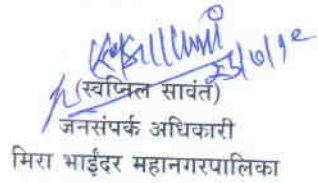 (स्वप्निल सावंत)
जनसंपर्क अधिकारी
मिरा भाईंदर महानगरपालिका